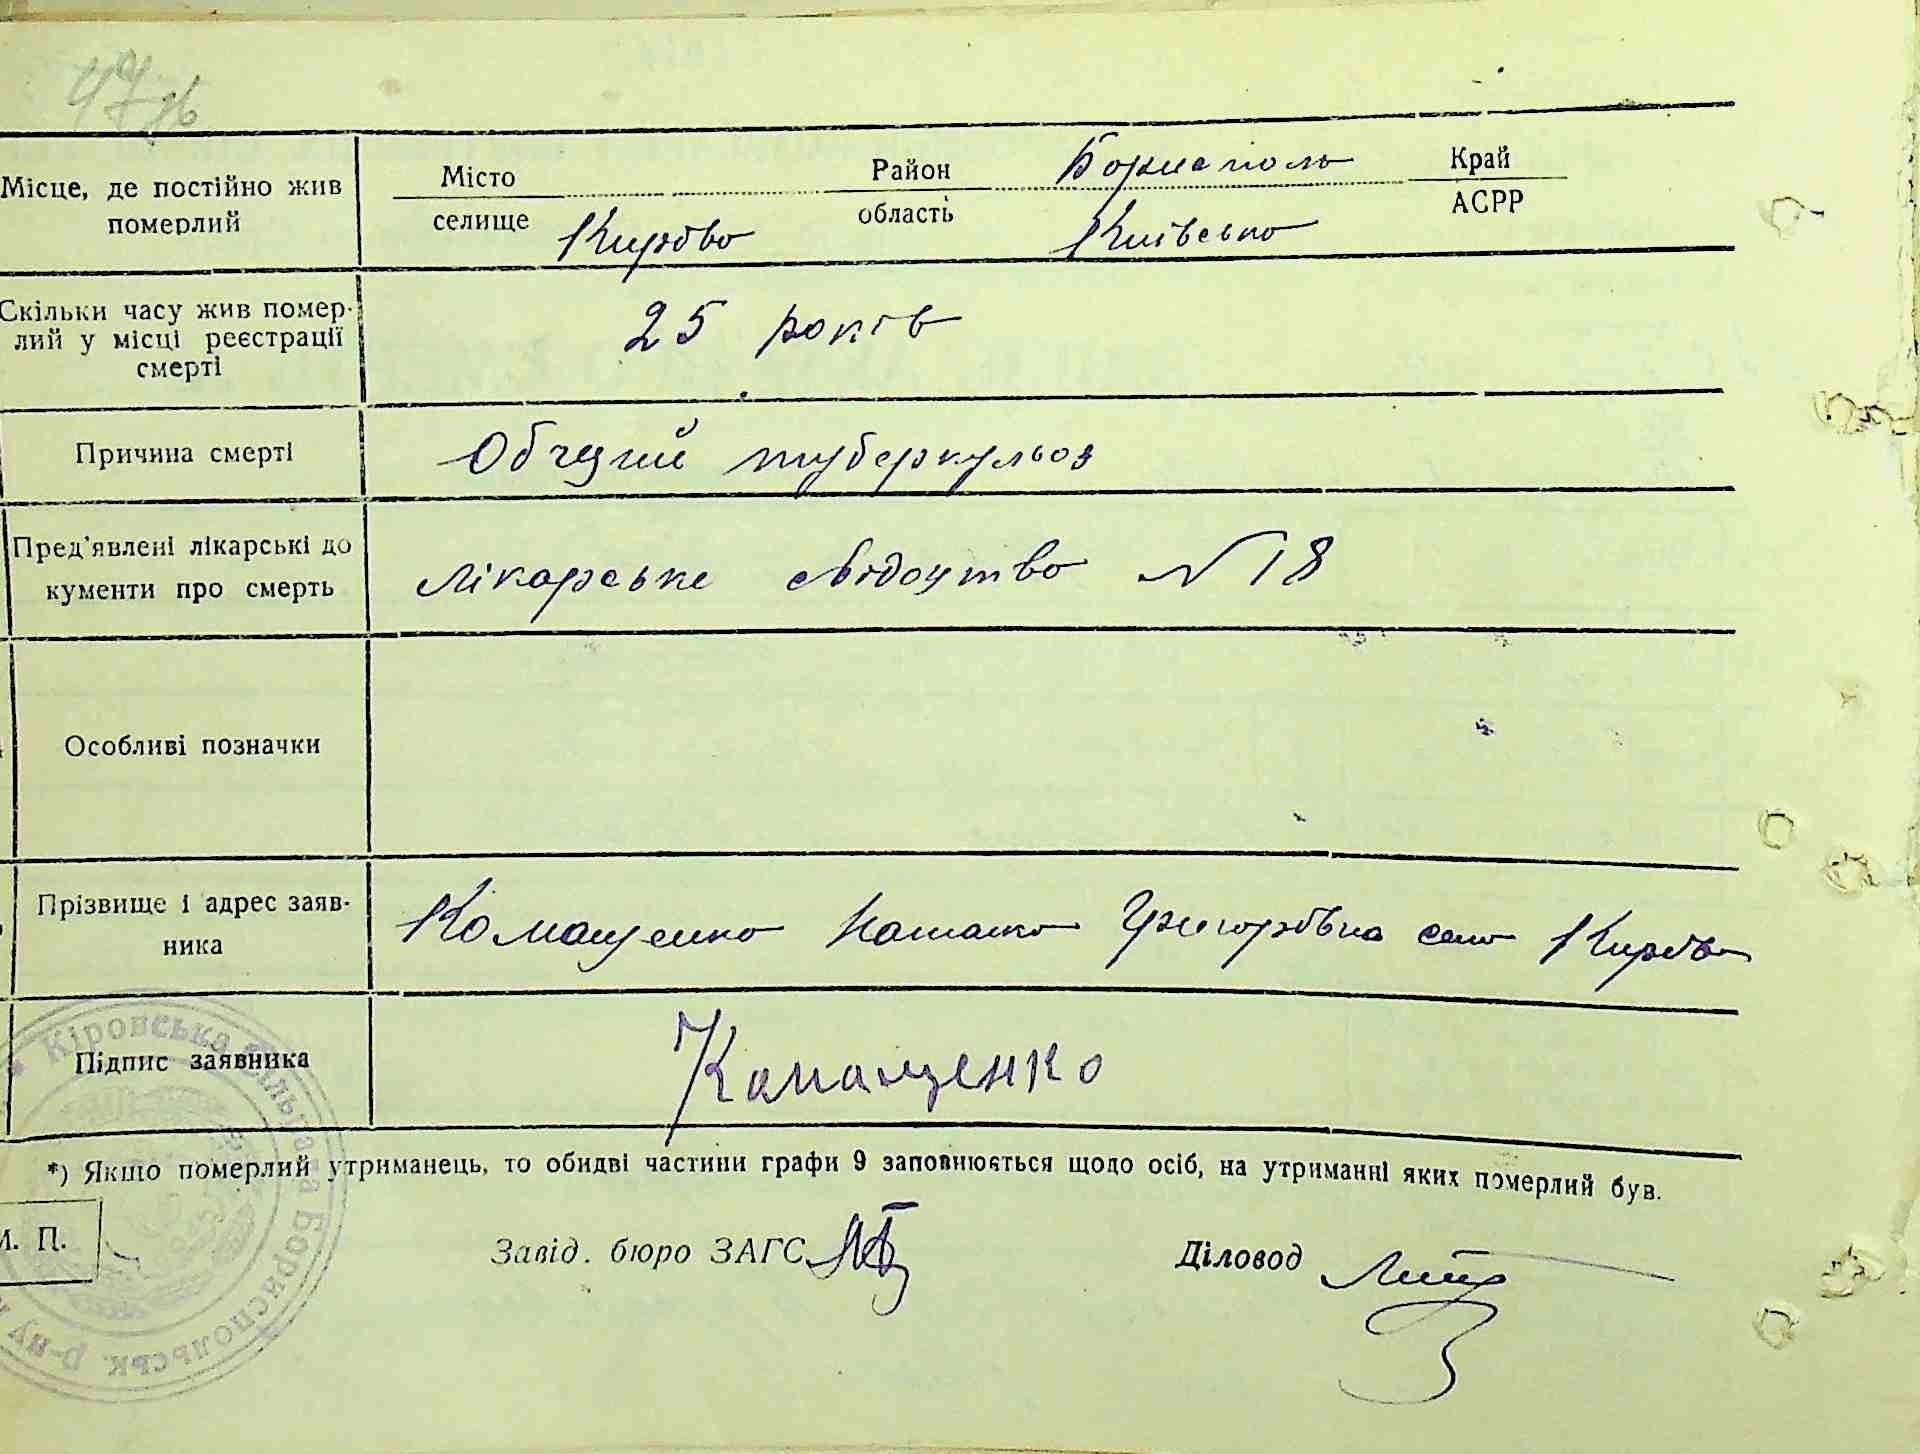 47 зв
Місце, де постійно жив
померлий
Місто
селище Кирово
Район Борисполь
область Київсько
Край
АСРР
Скільки часу жив помер-
лий у місці реєстрації
смерті
25 років
Причина смерті
Обчущий туберкульоз
Пред'явлені лікарські до
кументи про смерть
Лікарське свідоцтво N 18
Особливі позначки
Прізвище і адрес заяв-
ника
Комащенко Наталка Григорівна село Кирово
Підпис заявника
Камащенко
*) Якщо померлий утриманець, то обидві частини графи 9 заповнюється щодо осіб, на утриманні яких померлий був.
М. П.
Завід. бюро ЗАГС
Діловод
Кіровська сільрада Бориспольськ. р-ну